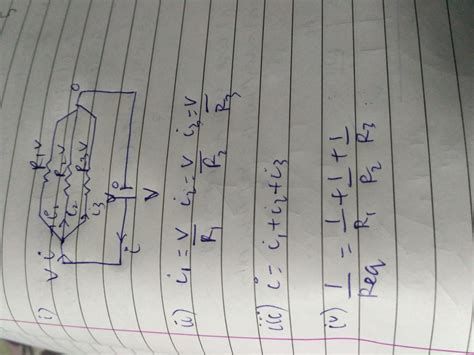 i)
V i
R₁ V
R₂ V
R₃ V
i₁
i₂
i₃
0
V 0
i
V
(ii) i₁ = V/R₁ i₂ = V/R₂ i₃ = V/R₃
(iii) i = i₁ + i₂ + i₃
(iv) 1/Req = 1/R₁ + 1/R₂ + 1/R₃